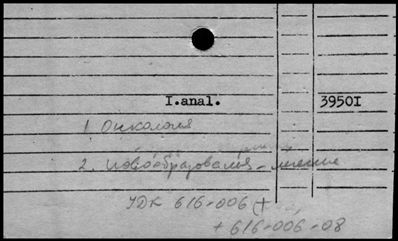 I.anal. 3950I
1. Онкология
2. Новообразования - лечение
УДК 616-006 (+
+ 616-006-08